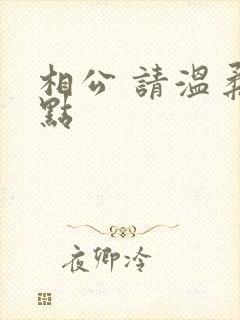 相公 請溫柔
點
夜卿冷